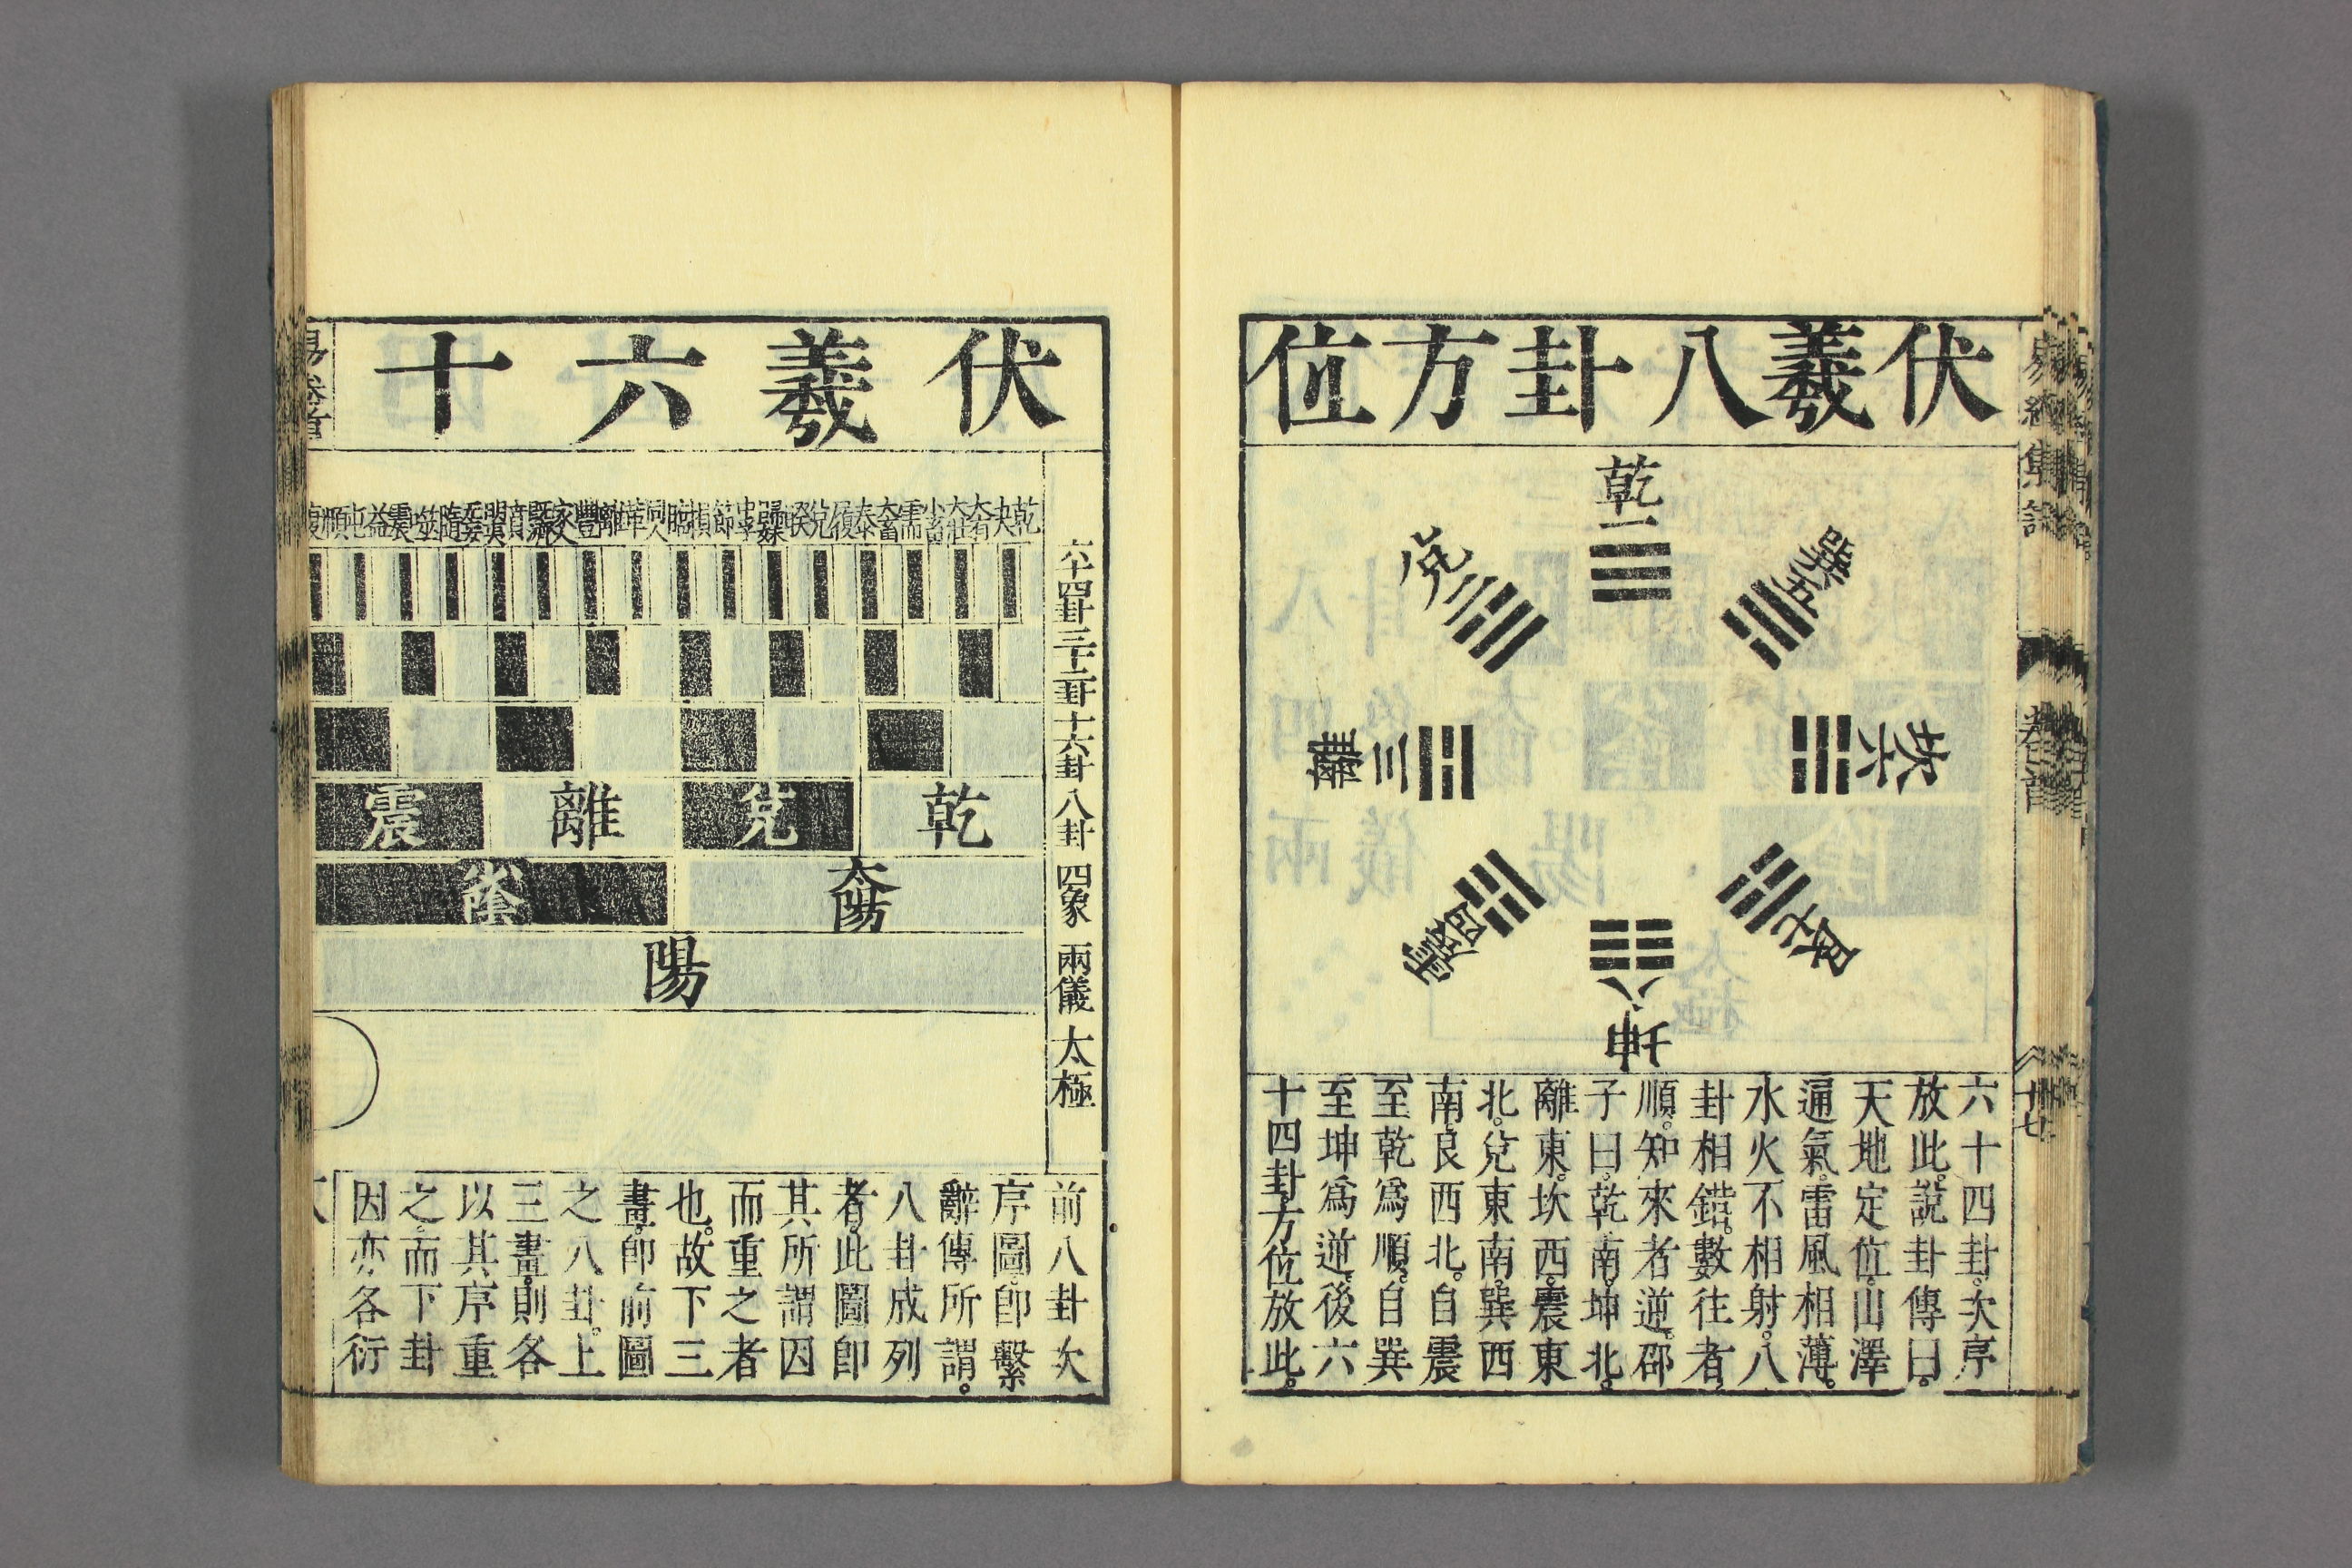 伏羲八卦方位
乾一
兌二
離三
震四
巽五
坎六
艮七
坤八
六十四卦次序
放此。說卦傳曰。
天地定位。山澤
通氣。雷風相薄。
水火不相射。八
卦相錯。數往者
順。知來者逆。邵
子曰。乾南。坤北。
離東。坎西。震東
北。兌東南。巽西
南。艮西北。自震
至乾爲順。自巽
至坤爲逆。後六
十四卦方位放此。
伏羲六十
六十四卦
三十二卦
十六卦
八卦
四象
兩儀
太極
乾夬大有大壯小畜需大畜泰履兌睽歸妹中孚節損臨同人革離豐家人旣濟賁明夷无妄隨噬嗑震益屯頤復
乾兌離震
太陽少陰
陽
前八卦次
序圖。卽繫
辭傳所謂。
八卦成列
者。此圖卽
其所謂因
而重之者
也。故下三
畫。卽前圖
之八卦。上
三畫。則各
以其序重
之。而下卦
因亦各衍